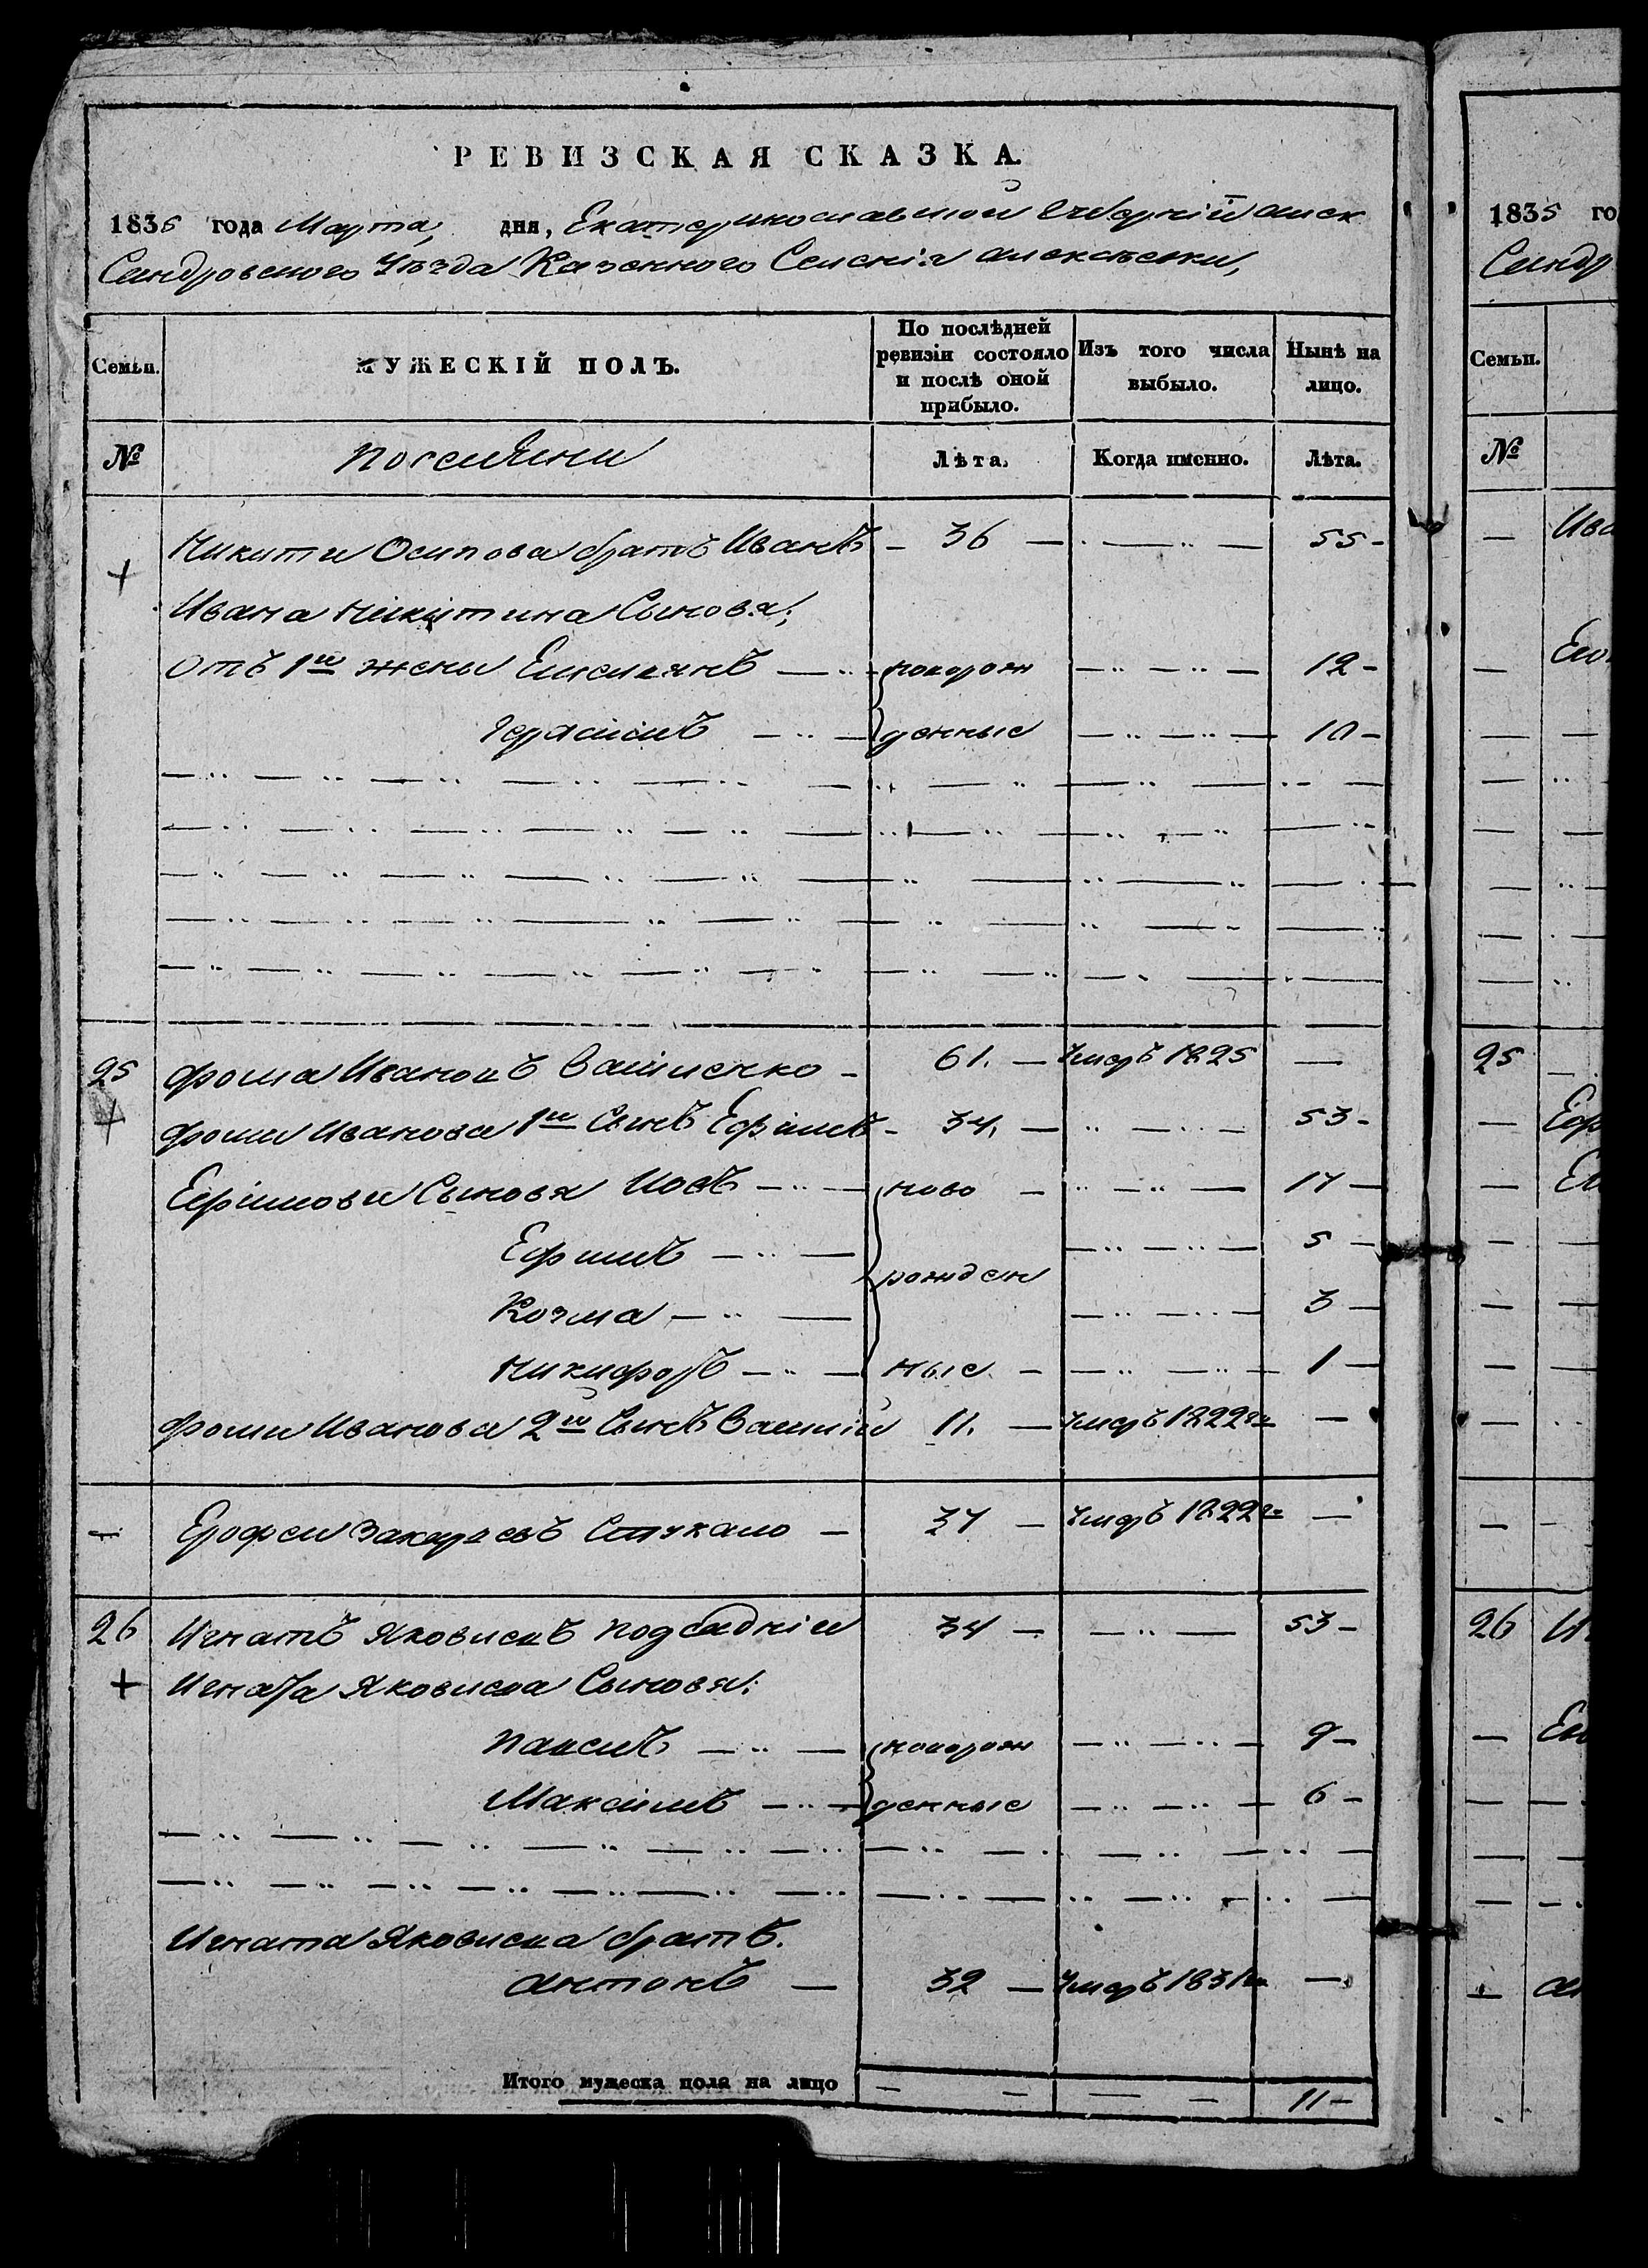 РЕВИЗСКАЯ СКАЗКА.
1835 года Марта, дня, Екатеринославской Губерній Алек
сандровского Уѣзда Казенного Селенія Алексѣевки,
Семьи. МУЖЕСКІЙ ПОЛЪ. По послѣдней ревизіи состояло и послѣ оной прибыло. Изъ того числа выбыло. Нынѣ на лицо.
№ Поселяни Лѣта. Когда именно. Лѣта.
Никити Осипова братъ Иванъ - 36 - 55-
Ивана Никитина Сыновя:
отъ 1й жены Емельянъ новорож 12-
Герасимъ денные 10-
25 Фома Ивановъ Василенко - 61. - Умеръ 1825 —
Фоми Иванова 1й Сынъ Ефимъ - 34. - 53-
Ефимови Сыновя Иовъ ново - 17 -
Ефимъ 5 -
рожден
Козма 3 -
Никифоръ ные - 1 -
Фоми Иванова 2й Сынъ Василій 11. - Умеръ 1822го —
— Ерофеи Захарьевъ Стукало - 37 - Умеръ 1822го —
26 Игнатъ Яковлевъ Подсадній 34 - 53-
+ Игната Яковлева Сыновя:
новорож 9-
Максимъ денные 6-
Игната Яковлева братъ.
Антонъ - 32 - Умеръ 1831го —
Итого мужеска пола на лицо 11-
1835 го
Сандр
Семьи.
№
— Ива
25
— Ефр
26